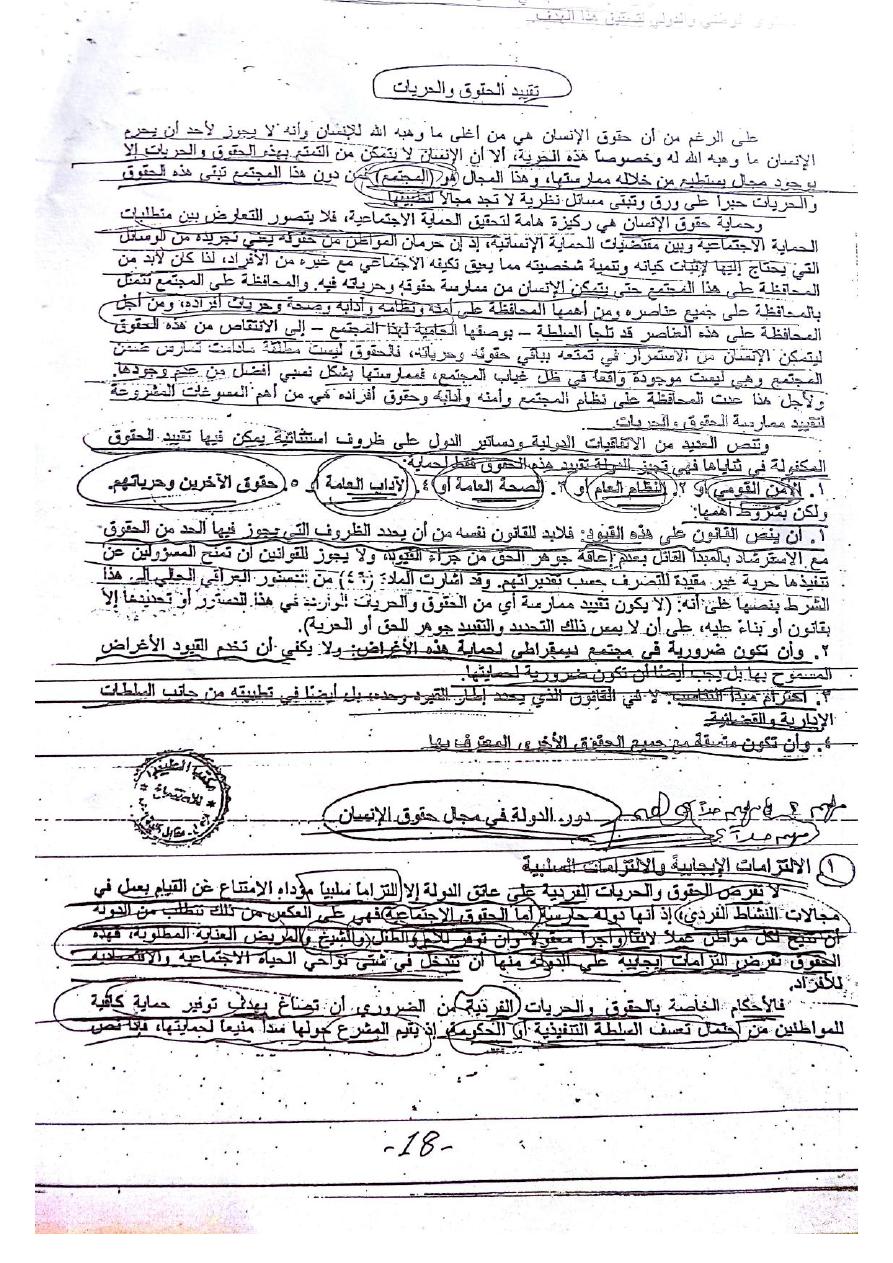 الوطني والدولي لتحقيق هذا الهدف.
تقييد الحقوق والحريات
على الرغم من أن حقوق الإنسان هي من أغلى ما وهبه الله للإنسان وأنه لا يجوز لأحد أن يحرم
الإنسان ما وهبه الله له وخصوصاً هذه الحرية، ألا أن الإنسان لا يتمكن من التمتع بهذه الحقوق والحريات إلا
بوجود مجال يستطيع من خلاله ممارستها، وهذا المجال هو (المجتمع) فمن دون هذا المجتمع تبقى هذه الحقوق
والحريات حبراً على ورق وتبقى مسائل نظرية لا تجد مجالاً لتطبيقها
وحماية حقوق الإنسان هي ركيزة هامة لتحقيق الحماية الاجتماعية، فلا يتصور التعارض بين متطلبات
الحماية الاجتماعية وبين مقتضيات الحماية الإنسانية، إذ إن حرمان المواطن من حقوقه يعني تجريده من الوسائل
التي يحتاج إليها لإثبات كيانه وتنمية شخصيته مما يعيق تكيفه الاجتماعي مع غيره من الأفراد، لذا كان لابد من
المحافظة على هذا المجتمع حتى يتمكن الإنسان من ممارسة حقوقه وحرياته فيه. والمحافظة على المجتمع تتمثل
بالمحافظة على جميع عناصره ومن أهمها المحافظة على أمنه ونظامه وآدابه وصحة وحريات أفراده، ومن أجل
المحافظة على هذه العناصر قد تلجأ السلطة - بوصفها الحامية لهذا المجتمع - إلى الانتقاص من هذه الحقوق
ليتمكن الإنسان من الاستمرار في تمتعه بباقي حقوقه وحرياته، فالحقوق ليست مطلقة مادامت تمارس ضمن
المجتمع وهي ليست موجودة واقعاً في ظل غياب المجتمع، فممارستها بشكل نسبي أفضل من عدم وجودها.
ولأجل هذا عدت المحافظة على نظام المجتمع وأمنه وآدابه وحقوق أفراده هي من أهم المسوغات المشروعة
لتقييد ممارسة الحقوق والحريات.
وتنص العديد من الاتفاقيات الدولية ودساتير الدول على ظروف استثنائية يمكن فيها تقييد الحقوق
المكفولة في ثناياها فهي تجيز الدولة تقييد هذه الحقوق فقط لحماية:
١. الأمن القومي أو ٢. النظام العام أو ٣. الصحة العامة أو ٤. الآداب العامة أو ٥. حقوق الآخرين وحرياتهم.
ولكن بشروط أهمها:
١. أن ينص القانون على هذه القيود: فلابد للقانون نفسه من أن يحدد الظروف التي يجوز فيها الحد من الحقوق
مع الاسترشاد بالمبدأ القائل بعدم إعاقة جوهر الحق من جراء القيود، ولا يجوز للقوانين أن تمنح المسؤولين عن
تنفيذها حرية غير مقيدة للتصرف حسب تقديراتهم. وقد أشارت المادة (٤٦) من الدستور العراقي الحالي إلى هذا
الشرط بنصها على أنه: (لا يكون تقييد ممارسة أي من الحقوق والحريات الواردة في هذا الدستور أو تحديدها إلا
بقانون أو بناءً عليه، على أن لا يمس ذلك التحديد والتقييد جوهر للحق أو الحرية).
٢. وأن تكون ضرورية في مجتمع ديمقراطي لحماية هذه الأغراض: ولا يكفي أن تخدم القيود الأغراض
المسموح بها بل يجب أيضاً أن تكون ضرورية لحمايتها.
٣. احترام مبدأ التناسب. لا في القانون الذي يحدد إطار القيود وحده، بل أيضاً في تطبيقه من جانب السلطات
الإدارية والقضائية
٤. وأن تكون متسقة مع جميع الحقوق الأخرى المعترف بها
دور الدولة في مجال حقوق الإنسان
مهم جداً
١ الالتزامات الإيجابية والالتزامات السلبية
لا تفرض الحقوق والحريات الفردية على عاتق الدولة إلا التزاماً سلبياً مؤداه الامتناع عن القيام بعمل في
مجالات النشاط الفردي، إذ أنها دولة حارسة أما الحقوق الاجتماعية فهي على العكس من ذلك تتطلب من الدولة
أن تتيح لكل مواطن عملاً لائقاً وأجراً معقولاً وأن توفر للأم والطفل والشيخ والمريض العناية المطلوبة، فهذه
الحقوق تفرض التزامات إيجابية على الدولة منها أن تتدخل في شتى نواحي الحياة الاجتماعية والاقتصادية
للأفراد.
فالأحكام الخاصة بالحقوق والحريات الفردية من الضروري أن تصاغ بهدف توفير حماية كافية
للمواطنين من احتمال تعسف السلطة التنفيذية أو الحكومة، إذ يقيم المشرع حولها سداً منيعاً لحمايتها، فإذا نص
-18-